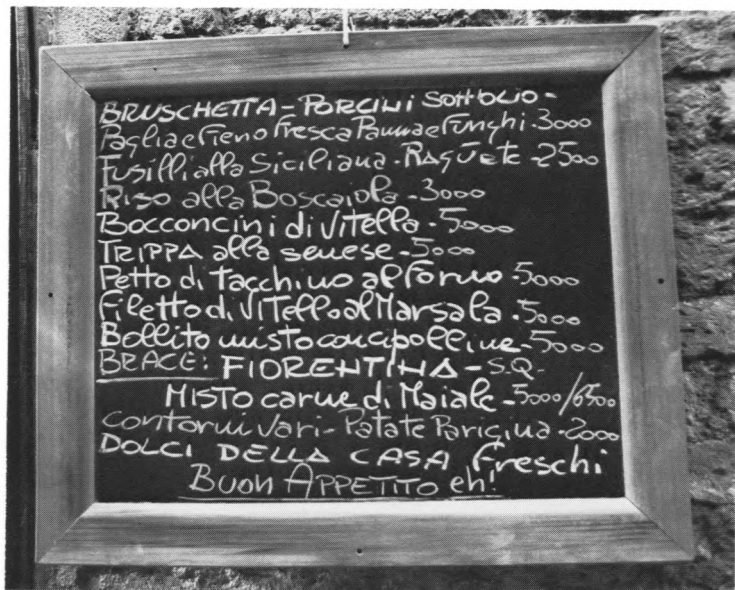 BRUSCHETTA - PORCINI Sott'OLIO -
Paglia e Fieno Fresca Panna e Funghi - 3000
Fusilli alla Siciliana - RAGÙ etc - 2500
Riso alla Boscaiola - 3000
Bocconcini di Vitella - 5000
TRIPPA alla senese - 5000
Petto di Tacchino al Forno - 5000
Filetto di VITello al Marsala - 5000
Bollito misto con cipolline - 5000
BRACE: FIORENTINA - S.Q. -
MISTO carne di Maiale - 5000/6500
contorni vari - Patate Parigina - 2000
DOLCI DELLA CASA Freschi
BUON APPETITO eh!